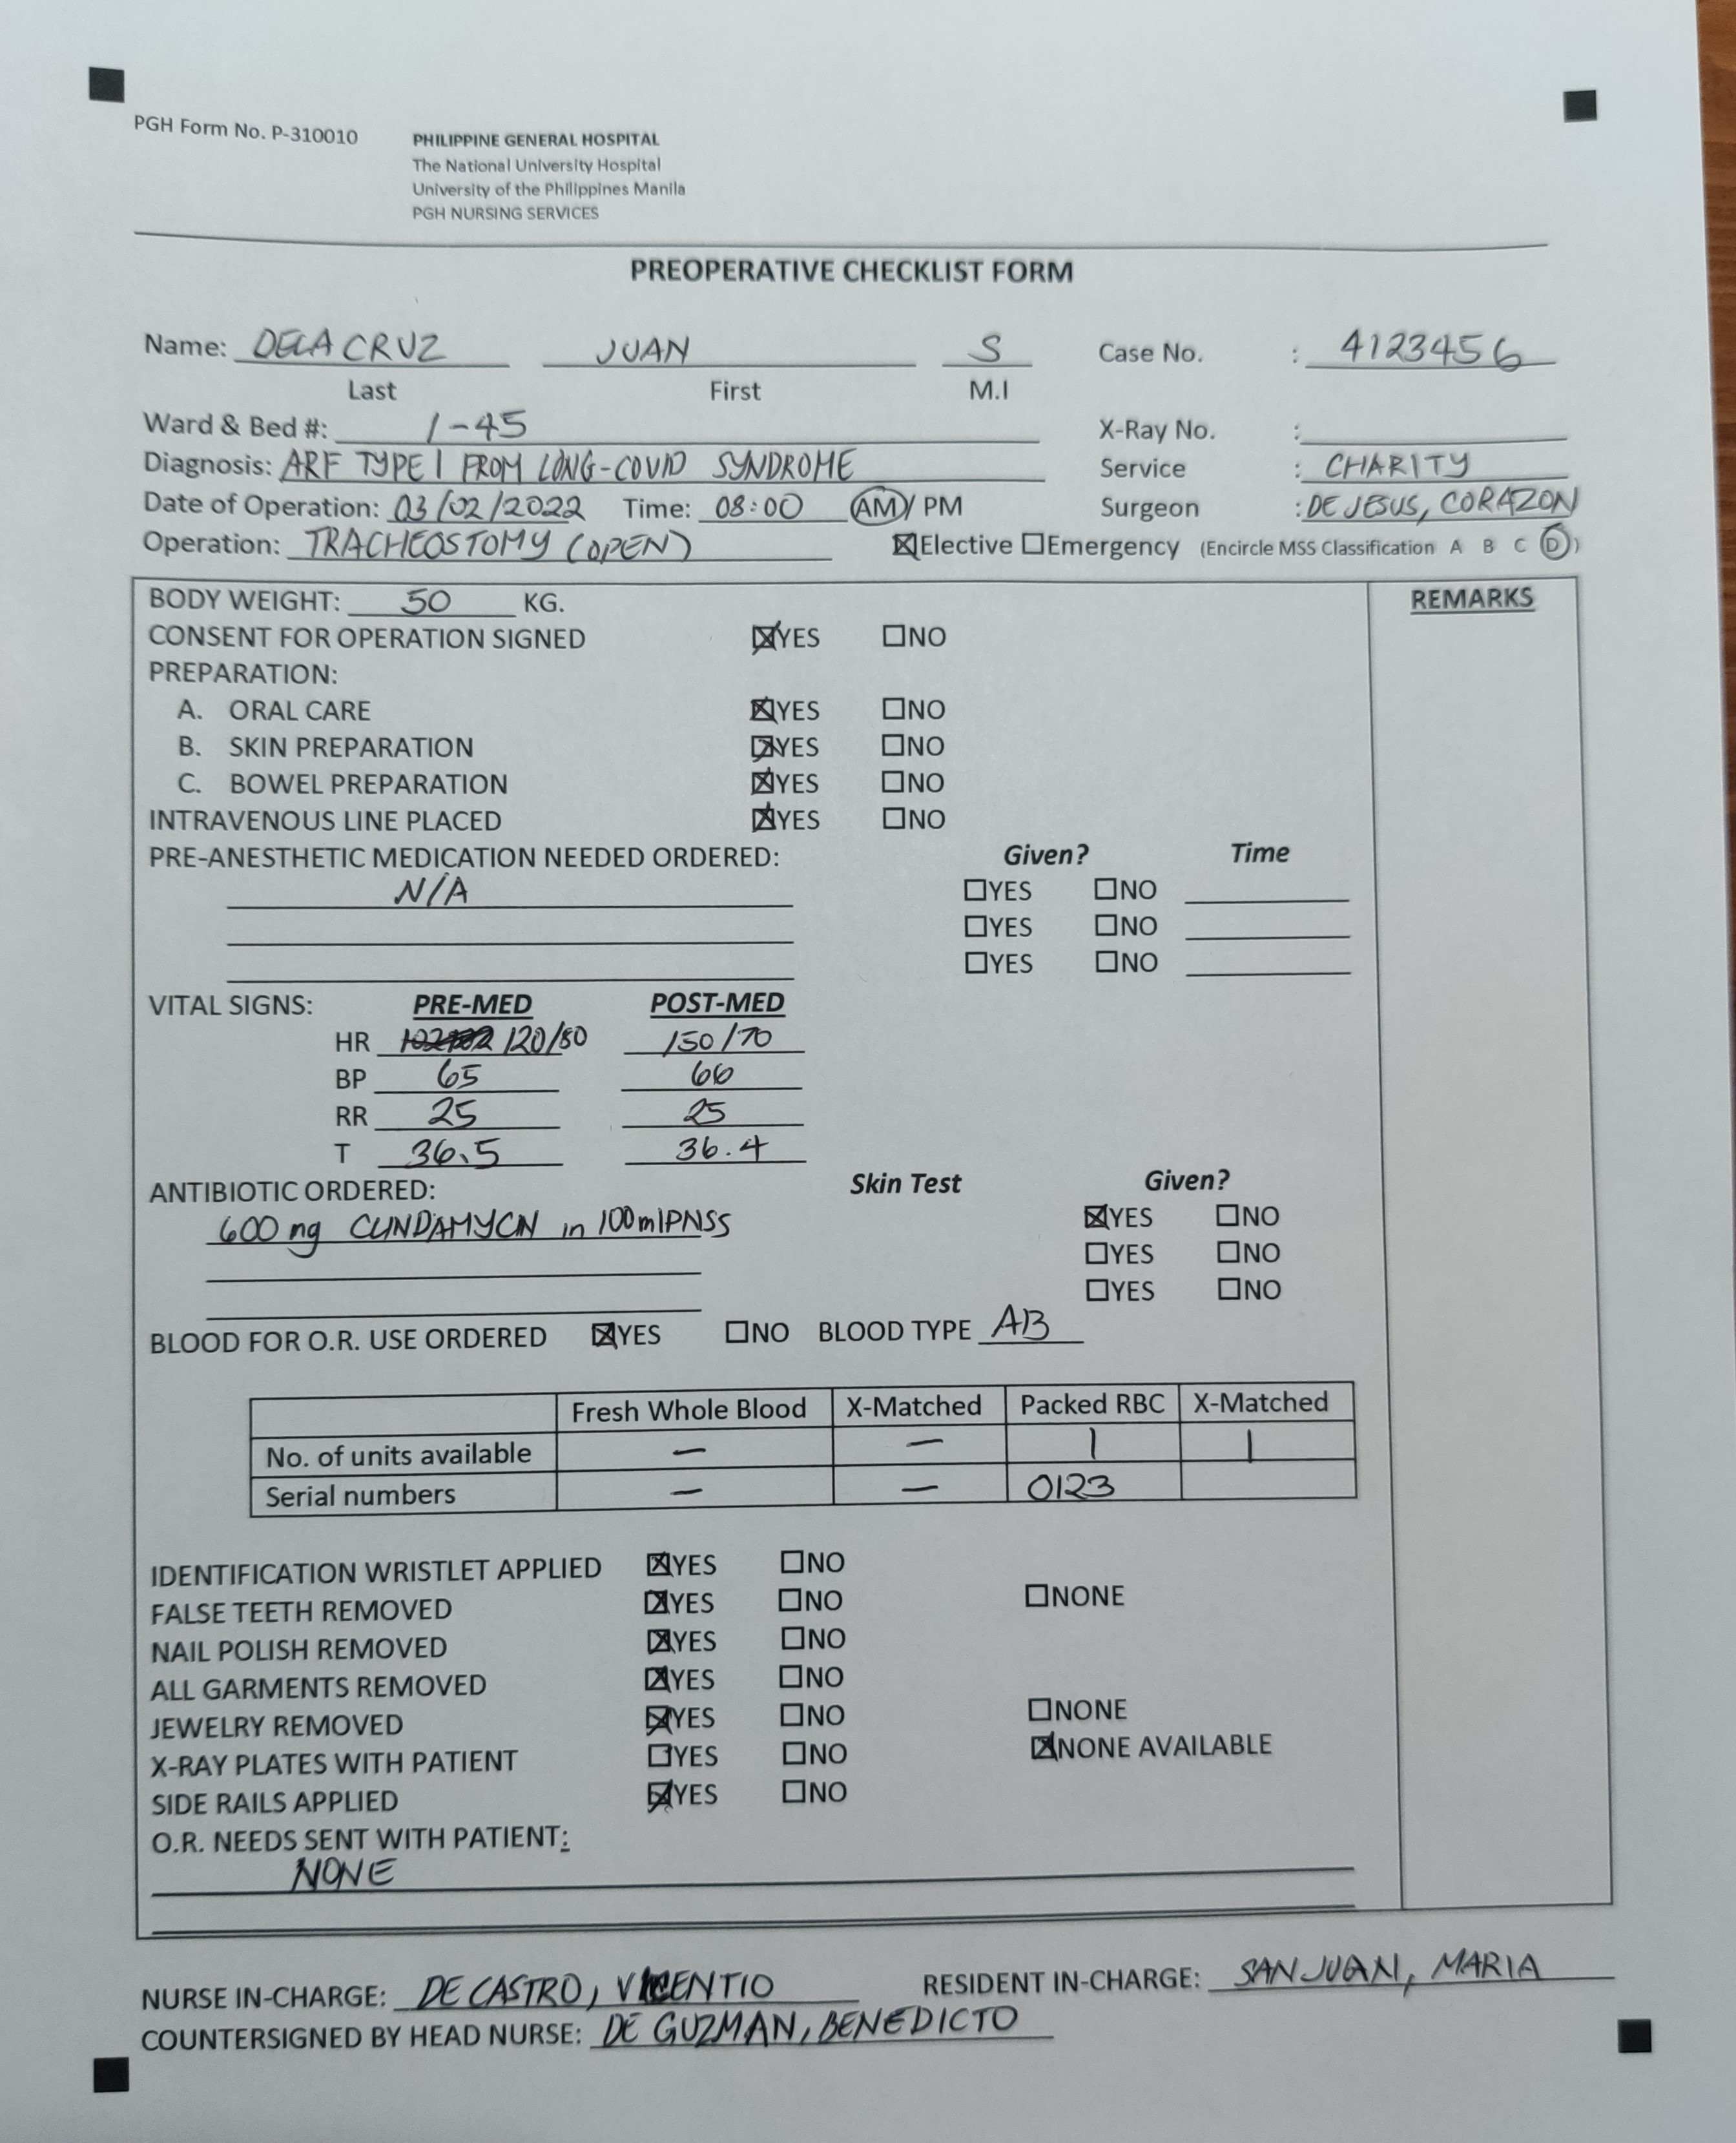 PGH Form No. P-310010
PHILIPPINE GENERAL HOSPITAL
The National University Hospital
University of the Philippines Manila
PGH NURSING SERVICES
PREOPERATIVE CHECKLIST FORM
Name: DELA CRUZ JUAN S Case No. : 4123456
Last First M.I
Ward & Bed #: 1-45 X-Ray No. :
Diagnosis: ARF TYPE I FROM LONG-COVID SYNDROME Service : CHARITY
Date of Operation: 03/02/2022 Time: 08:00 AM / PM Surgeon : DE JESUS, CORAZON
Operation: TRACHEOSTOMY (OPEN) ☒Elective ☐Emergency (Encircle MSS Classification A B C D)
BODY WEIGHT: 50 KG. REMARKS
CONSENT FOR OPERATION SIGNED ☒YES ☐NO
PREPARATION:
A. ORAL CARE ☒YES ☐NO
B. SKIN PREPARATION ☒YES ☐NO
C. BOWEL PREPARATION ☒YES ☐NO
INTRAVENOUS LINE PLACED ☒YES ☐NO
PRE-ANESTHETIC MEDICATION NEEDED ORDERED: Given? Time
N/A ☐YES ☐NO
☐YES ☐NO
☐YES ☐NO
VITAL SIGNS: PRE-MED POST-MED
HR 120/80 150/70
BP 65 66
RR 25 25
T 36.5 36.4
ANTIBIOTIC ORDERED: Skin Test Given?
600 mg CLINDAMYCIN in 100ml PNSS ☒YES ☐NO
☐YES ☐NO
☐YES ☐NO
BLOOD FOR O.R. USE ORDERED ☒YES ☐NO BLOOD TYPE AB
Fresh Whole Blood X-Matched Packed RBC X-Matched
No. of units available — — 1 1
Serial numbers — — 0123
IDENTIFICATION WRISTLET APPLIED ☒YES ☐NO
FALSE TEETH REMOVED ☒YES ☐NO ☐NONE
NAIL POLISH REMOVED ☒YES ☐NO
ALL GARMENTS REMOVED ☒YES ☐NO
JEWELRY REMOVED ☒YES ☐NO ☐NONE
X-RAY PLATES WITH PATIENT ☐YES ☐NO ☒NONE AVAILABLE
SIDE RAILS APPLIED ☒YES ☐NO
O.R. NEEDS SENT WITH PATIENT:
NONE
NURSE IN-CHARGE: DE CASTRO, VICENTIO RESIDENT IN-CHARGE: SAN JUAN, MARIA
COUNTERSIGNED BY HEAD NURSE: DE GUZMAN, BENEDICTO